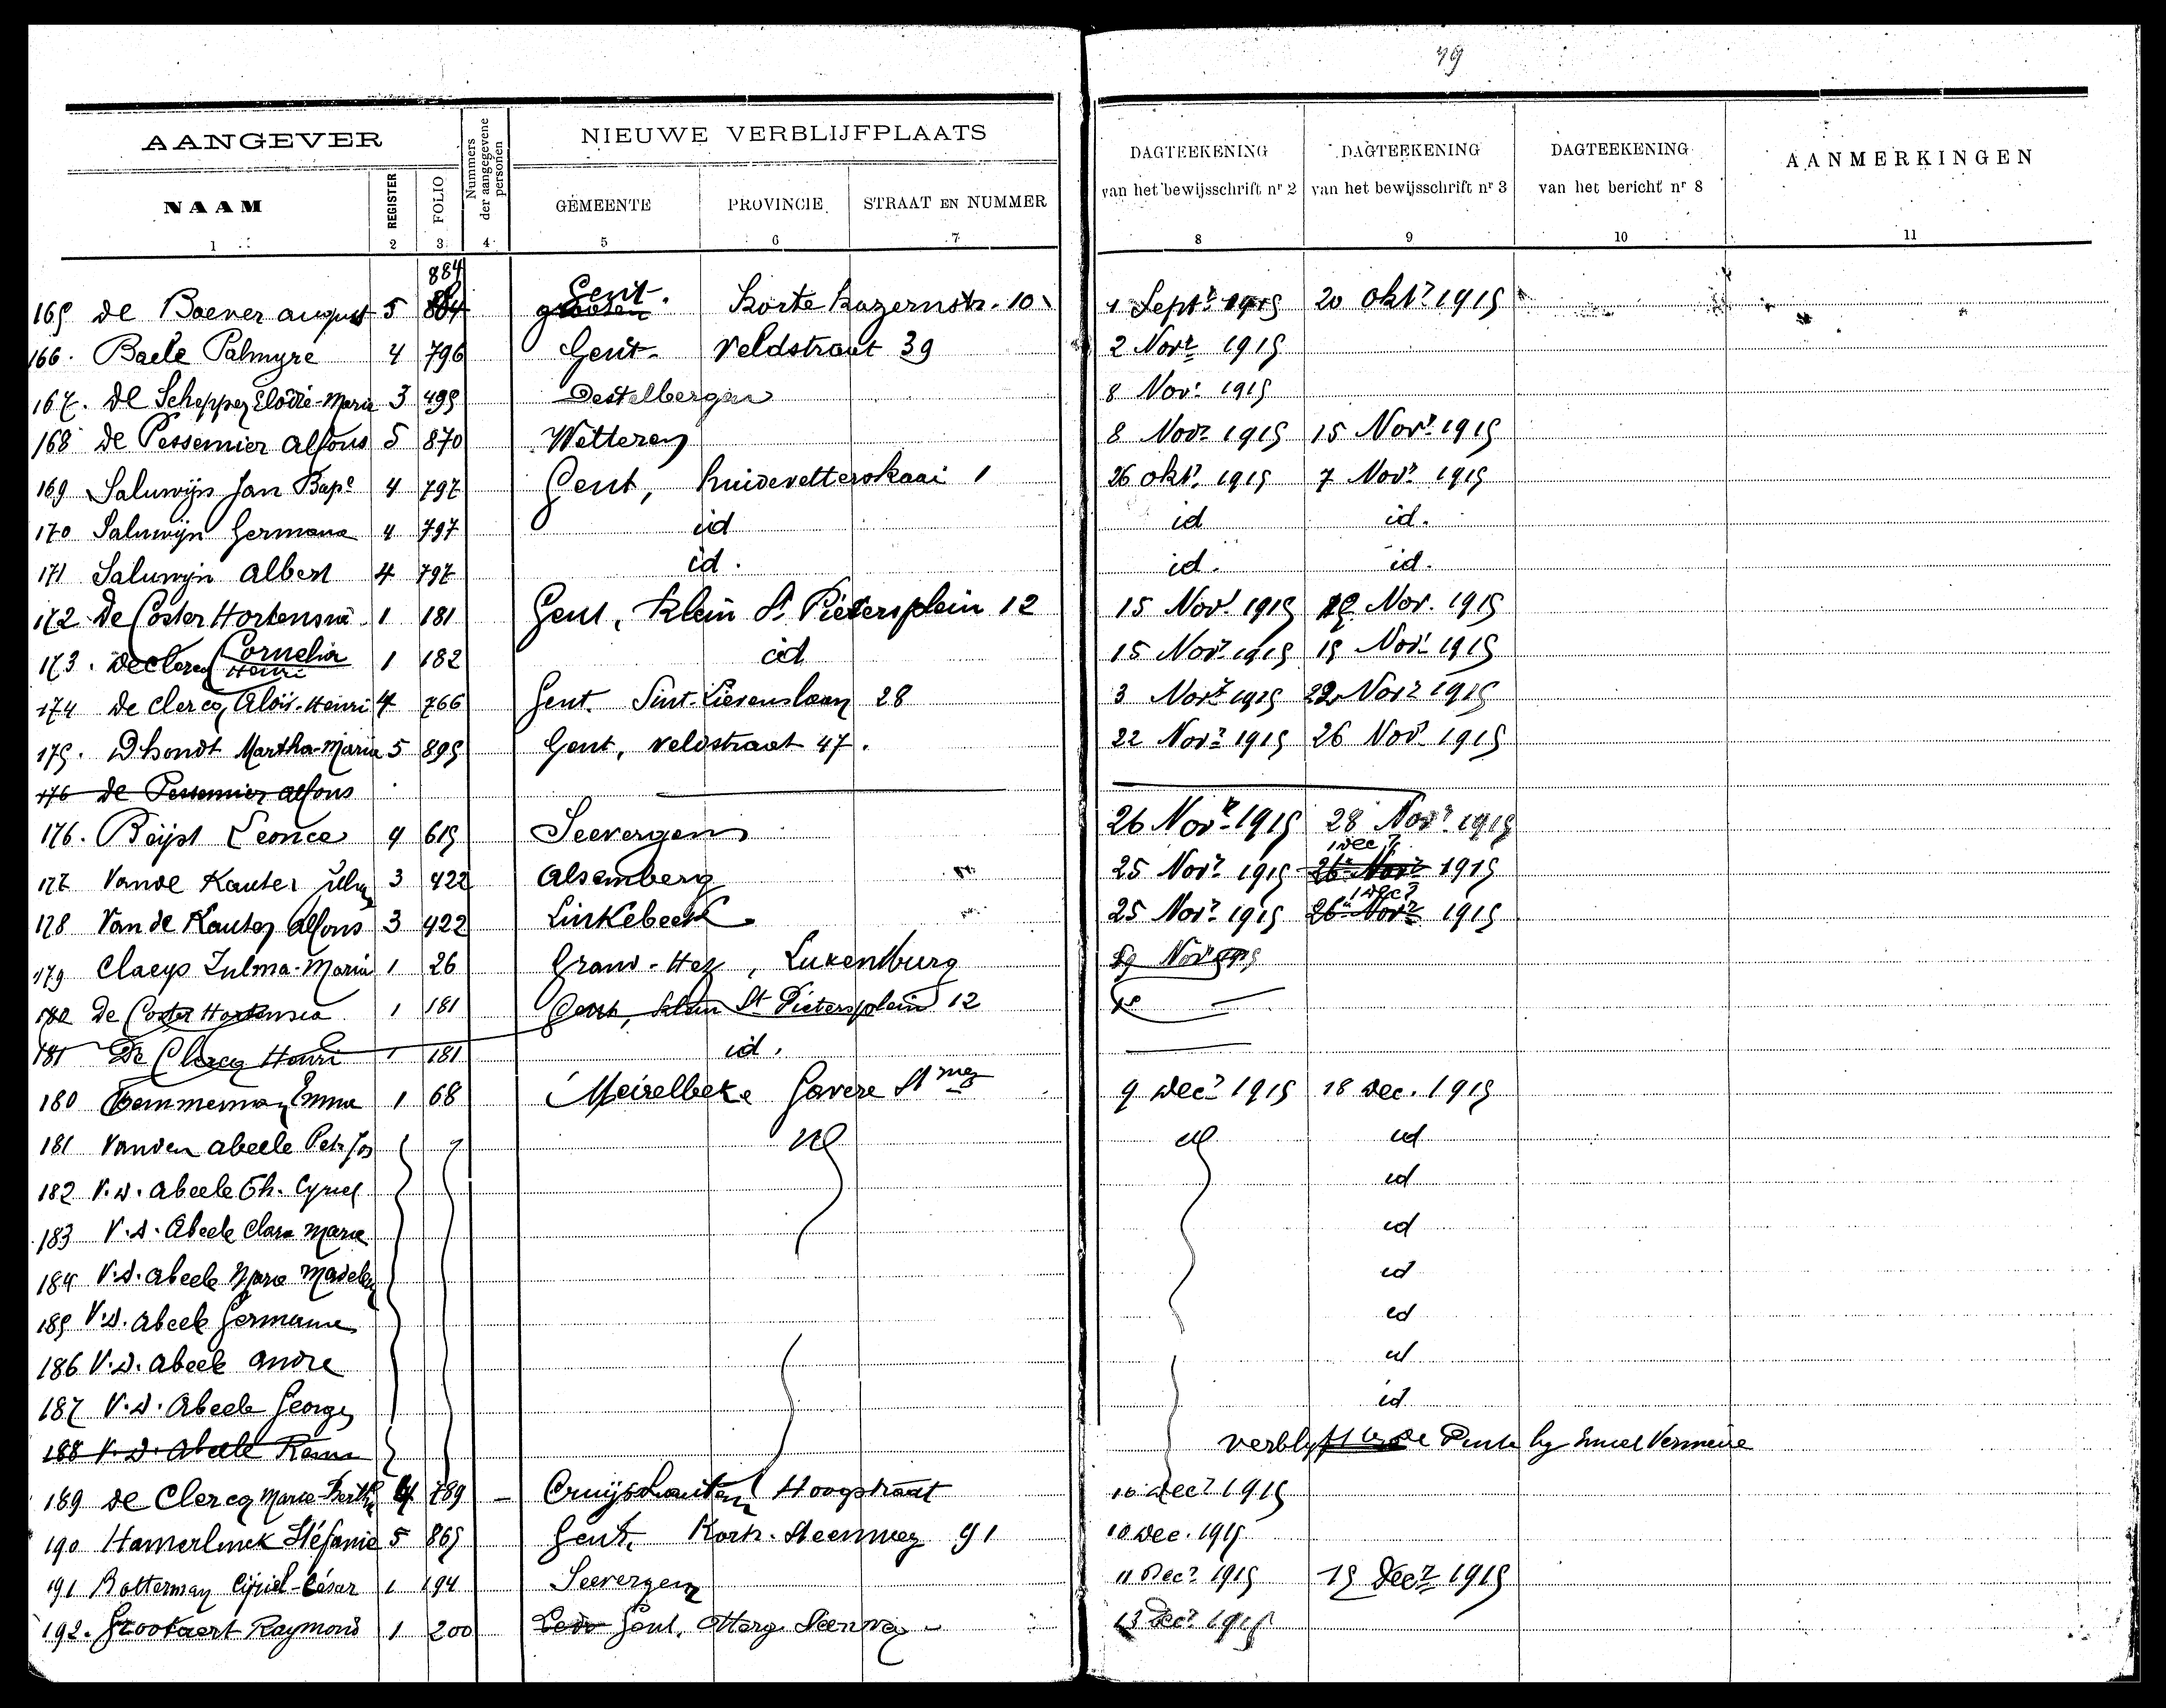 79
AANGEVER
Nummers der aangegevene personen
NIEUWE VERBLIJFPLAATS
DAGTEEKENING van het bewijsschrift nr 2
DAGTEEKENING van het bewijsschrift nr 3
DAGTEEKENING van het bericht nr 8
AANMERKINGEN
NAAM REGISTER FOLIO GEMEENTE PROVINCIE STRAAT EN NUMMER
1 2 3 4 5 6 7 8 9 10 11
884
165 de Boever august 5 884 Gent. Korte Kazernstr. 10 1 Septr 1915 20 oktr 1915
166. Baele Palmyre 4 796 Gent. Veldstraat 39 2 Novr 1915
167. De Schepper Elodie-Maria 3 495 Destelbergen 8 Nov. 1915
168 de Pessemier Alfons 5 870 Wetteren 8 Novr 1915 15 Novr 1915
169 Saluwijn Jan Bape 4 797 Gent, huidevetterskaai 1 26 okt. 1915 7 Novr 1915
170 Saluwijn Germana 4 797 id id id.
171 Saluwijn Albert 4 797 id. id. id.
172 De Coster Hortensia 1 181 Gent, Klein St Pietersplein 12 15 Novr 1915 Nov. 1915
173. De Clercq Cornelia Henri 1 182 id 15 Novr 1915 19 Novr 1915
174 de Clercq Aloïs-Henri 4 766 Gent. Sint-Lievenslaan 28 3 Novr 1915 22 Novr 1915
175. Dhondt Martha-Maria 5 895 Gent, Veldstraat 47. 22 Novr 1915 26 Novr 1915
176 de Pessemier Alfons
176. Buijst Leonce 4 615 Seevergem 26 Novr 1915 28 Novr 1915
1 Dec r
177 Vande Kauter 3 422 Alsemberg 25 Novr 1915 26 Novr 1915
1 Dec r
178 Van de Kauter Alfons 3 422 Linkebeek 25 Novr 1915 26 Novr 1915
179 Claeys Zulma-Maria 1 26 Grand-Hez, Luxemburg Nov 1915
180 De Coster Hortensia 1 181 Gent, Klein St Pietersplein 12
181 De Clercq Henri 1 181 id.
180 Temmerman Emma 1 68 Meirelbeke Gavere Stweg 9 Decr 1915 18 Dec. 1915
181 Vanden Abeele Petr Jos id id id
182 V.d. Abeele Th. Cyriel id
183 V.d. Abeele Clara Maria id
184 V.d. Abeele Madelen id
185 V.d. Abeele Germaine id
186 V.d. Abeele Andre id
187 V.d. Abeele George id
188 V.d. Abeele Rema verblyft by
189 De Clercq Maria-Bertha 4 789 – Cruijshautem Hoogstraat 10 Decr 1915
190 Hamerlinck Stéfanie 5 865 Gent, Kortr. Steenweg 91 10 Dec. 1915
191 Botterman Cijriel-César 1 194 Seevergem 11 Decr 1915 15 Decr 1915
192. Grootaert Raymond 1 200 Lede Gent, Steenweg 13 Decr 1915